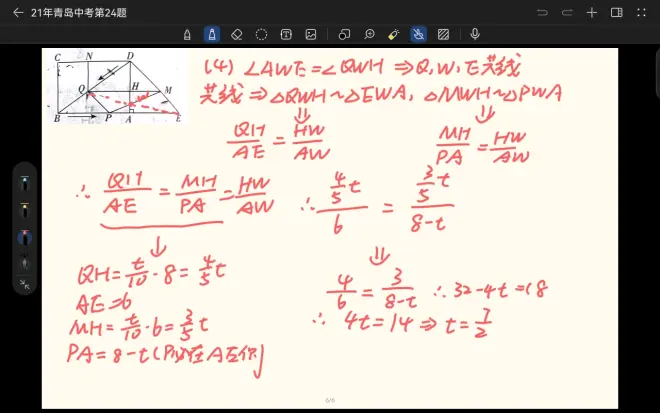 21年青岛中考第24题
C N D
Q H M
B P A E
(4) ∠AWE=∠QWH ⇒ Q, W, E共线
共线 ⇒ △QWH∼△EWA, △MWH∼△PWA
QH/AE = HW/AW
MH/PA = HW/AW
∴ QH/AE = MH/PA = HW/AW
∴ (4/5 t)/6 = (3/5 t)/(8-t)
QH = t/10 · 8 = 4/5 t
AE = 6
MH = t/10 · 6 = 3/5 t
PA = 8-t (P必在A左侧)
4/6 = 3/(8-t) ∴ 32-4t=18
∴ 4t=14 ⇒ t=7/2
6/6